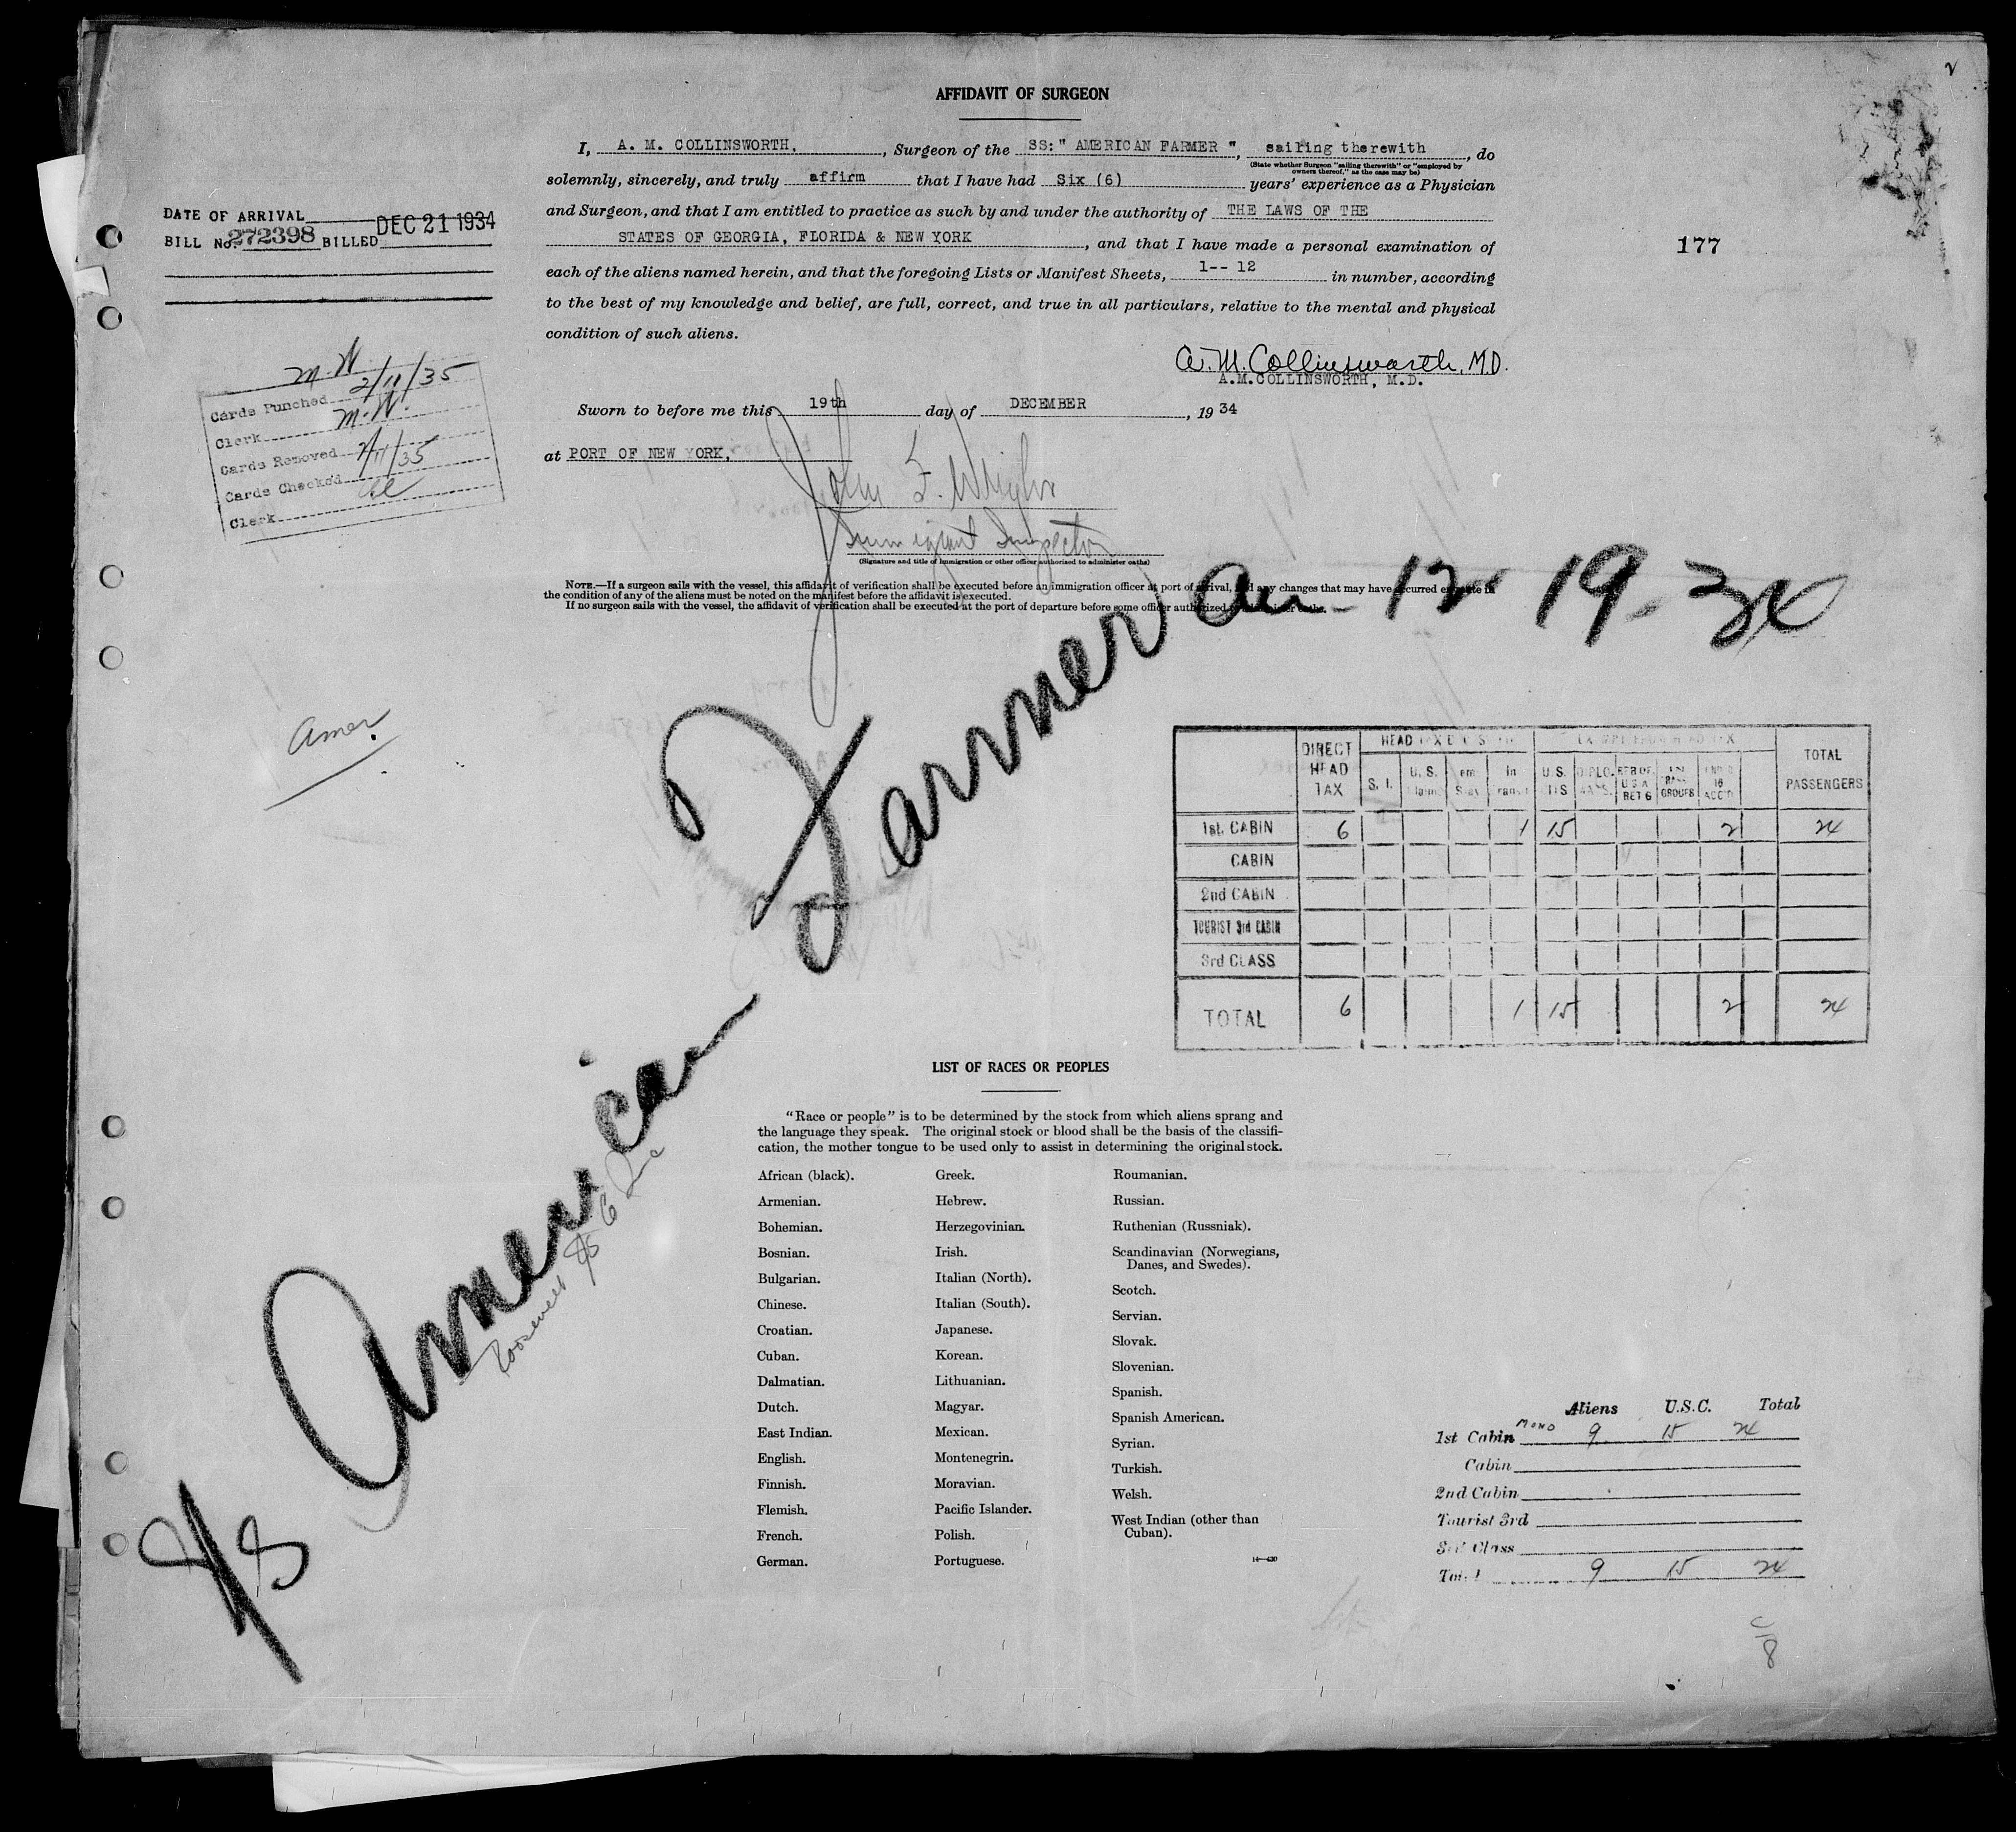 2
AFFIDAVIT OF SURGEON
I, A. M. COLLINSWORTH, , Surgeon of the SS:" AMERICAN FARMER ", sailing therewith , do
(State whether Surgeon "sailing therewith" or "employed by
owners thereof," as the case may be)
solemnly, sincerely, and truly affirm that I have had Six (6) years' experience as a Physician
and Surgeon, and that I am entitled to practice as such by and under the authority of THE LAWS OF THE
STATES OF GEORGIA, FLORIDA & NEW YORK , and that I have made a personal examination of
each of the aliens named herein, and that the foregoing Lists or Manifest Sheets, 1-- 12 in number, according
to the best of my knowledge and belief, are full, correct, and true in all particulars, relative to the mental and physical
condition of such aliens.
DATE OF ARRIVAL
DEC 21 1934
BILL No. 272398 BILLED
177
A. M. Collinsworth, M.D.
A.M.COLLINSWORTH, M.D.
Sworn to before me this 19th day of DECEMBER , 19 34
at PORT OF NEW YORK,
John F. Wright
Immigrant Inspector
(Signature and title of immigration or other officer authorized to administer oaths)
M.W. 2/11/35
Cards Punched
M.W.
Clerk
Cards Removed 2/11/35
Cards Checked
Clerk
NOTE.—If a surgeon sails with the vessel, this affidavit of verification shall be executed before an immigration officer at port of arrival, and any changes that may have occurred en route in
the condition of any of the aliens must be noted on the manifest before the affidavit is executed.
If no surgeon sails with the vessel, the affidavit of verification shall be executed at the port of departure before some officer authorized to administer oaths.
S/S American Farmer arr - 12 - 19 - 34
Amer.
Roosevelt S/S
DIRECT HEAD TAX
S. I.
U. S.
in
U. S.
RET 6
GROUPS
16
TOTAL PASSENGERS
1st. CABIN 6 1 15 2 24
CABIN
2nd CABIN
TOURIST 3rd CABIN
3rd CLASS
TOTAL 6 1 15 2 24
LIST OF RACES OR PEOPLES
"Race or people" is to be determined by the stock from which aliens sprang and
the language they speak. The original stock or blood shall be the basis of the classifi-
cation, the mother tongue to be used only to assist in determining the original stock.
African (black).
Armenian.
Bohemian.
Bosnian.
Bulgarian.
Chinese.
Croatian.
Cuban.
Dalmatian.
Dutch.
East Indian.
English.
Finnish.
Flemish.
French.
German.
Greek.
Hebrew.
Herzegovinian.
Irish.
Italian (North).
Italian (South).
Japanese.
Korean.
Lithuanian.
Magyar.
Mexican.
Montenegrin.
Moravian.
Pacific Islander.
Polish.
Portuguese.
Roumanian.
Russian.
Ruthenian (Russniak).
Scandinavian (Norwegians,
Danes, and Swedes).
Scotch.
Servian.
Slovak.
Slovenian.
Spanish.
Spanish American.
Syrian.
Turkish.
Welsh.
West Indian (other than
Cuban).
Aliens U.S.C. Total
1st Cabin MONO 9 15 24
Cabin
2nd Cabin
Tourist 3rd
3rd Class
Total 9 15 24